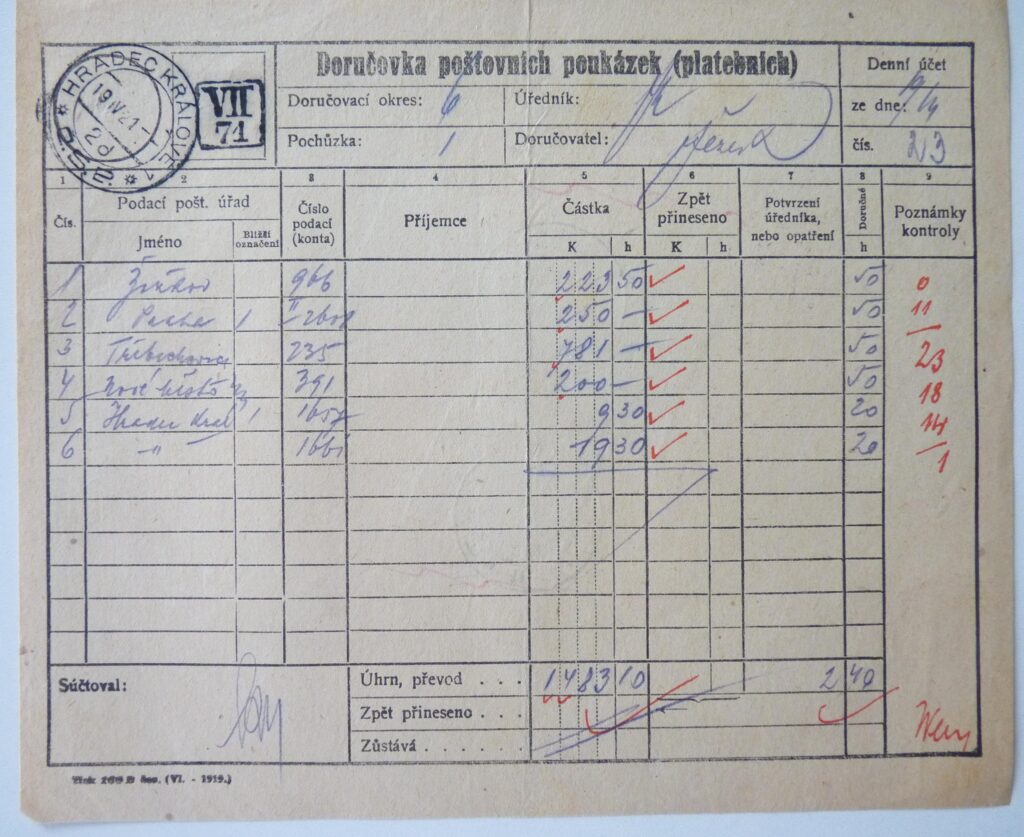 Doručovka poštovních poukázek (platebních)
Denní účet
HRADEC KRÁLOVÉ 1
19 IV 21
2d
Č.S.P.
VII
71
Doručovací okres: 6
Úředník:
ze dne: 19/4
Pochůzka: 1
Doručovatel:
čís. 23
1 2 3 4 5 6 7 8 9
Čís.
Podací pošt. úřad
Jméno
Bližší označení
Číslo podací (konta)
Příjemce
Částka
K h
Zpět přineseno
K h
Potvrzení úředníka, nebo opatření
Doručné
h
Poznámky kontroly
1 Žižkov 966 223 50 50 0
2 Praha 1 250 — 50 11
3 Třebechovice 235 781 — 50 23
4 Nové Město 391 200 — 50 18
5 Hradec Král 1 1657 9 30 20 14
6 —„— 1661 19 30 20 1
Súčtoval:
Úhrn, převod . . . 1483 10 2 40
Zpět přineseno . . .
Zůstává . . . . . . .
Tisk 269 B čes. (VI. - 1919.)